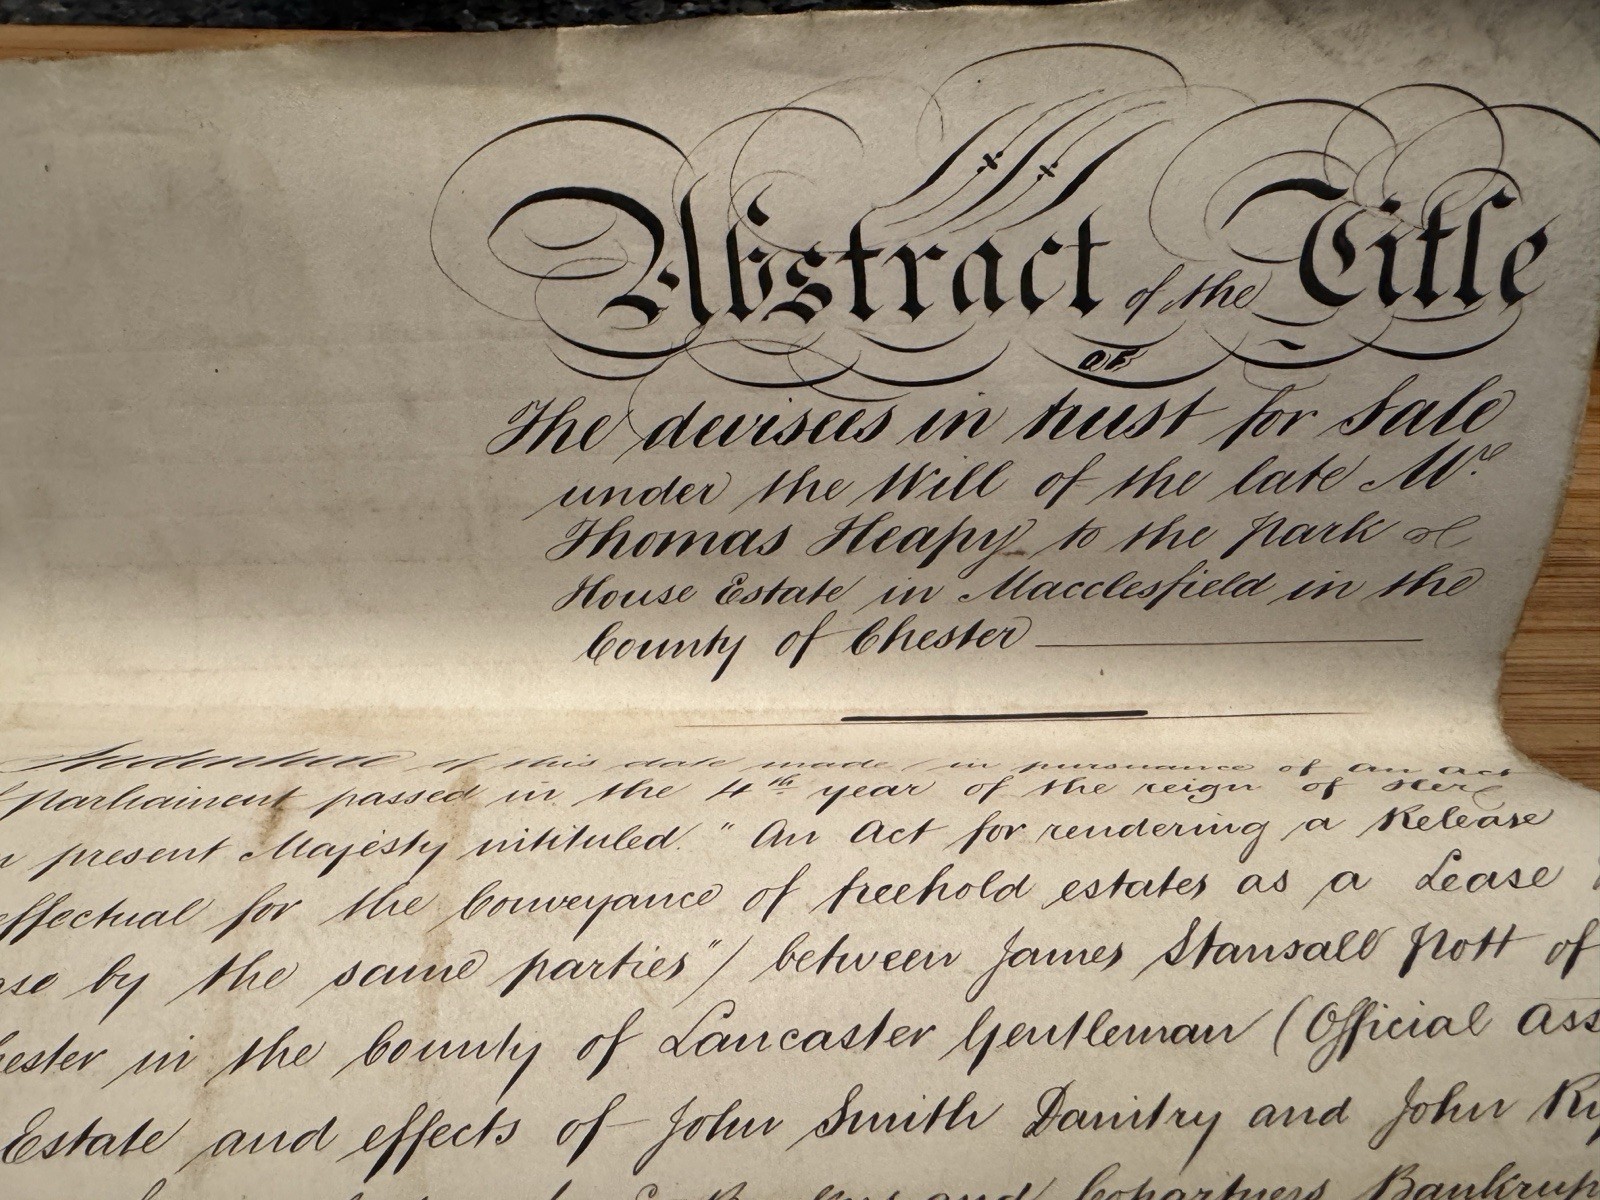 Abstract of the Title
of
The devisees in trust for Sale
under the Will of the late Mr.
Thomas Heapy to the Park
House Estate in Macclesfield in the
County of Chester
Indenture of this date made in pursuance of an act
Parliament passed in the 4th year of the reign of Her
present Majesty intituled "An Act for rendering a Release
effectual for the Conveyance of freehold estates as a Lease
by the same parties") between James Stansall Pott of
in the County of Lancaster Gentleman (Official Ass
Estate and effects of John Smith Daintry and John Ry
and Copartners Bankrup